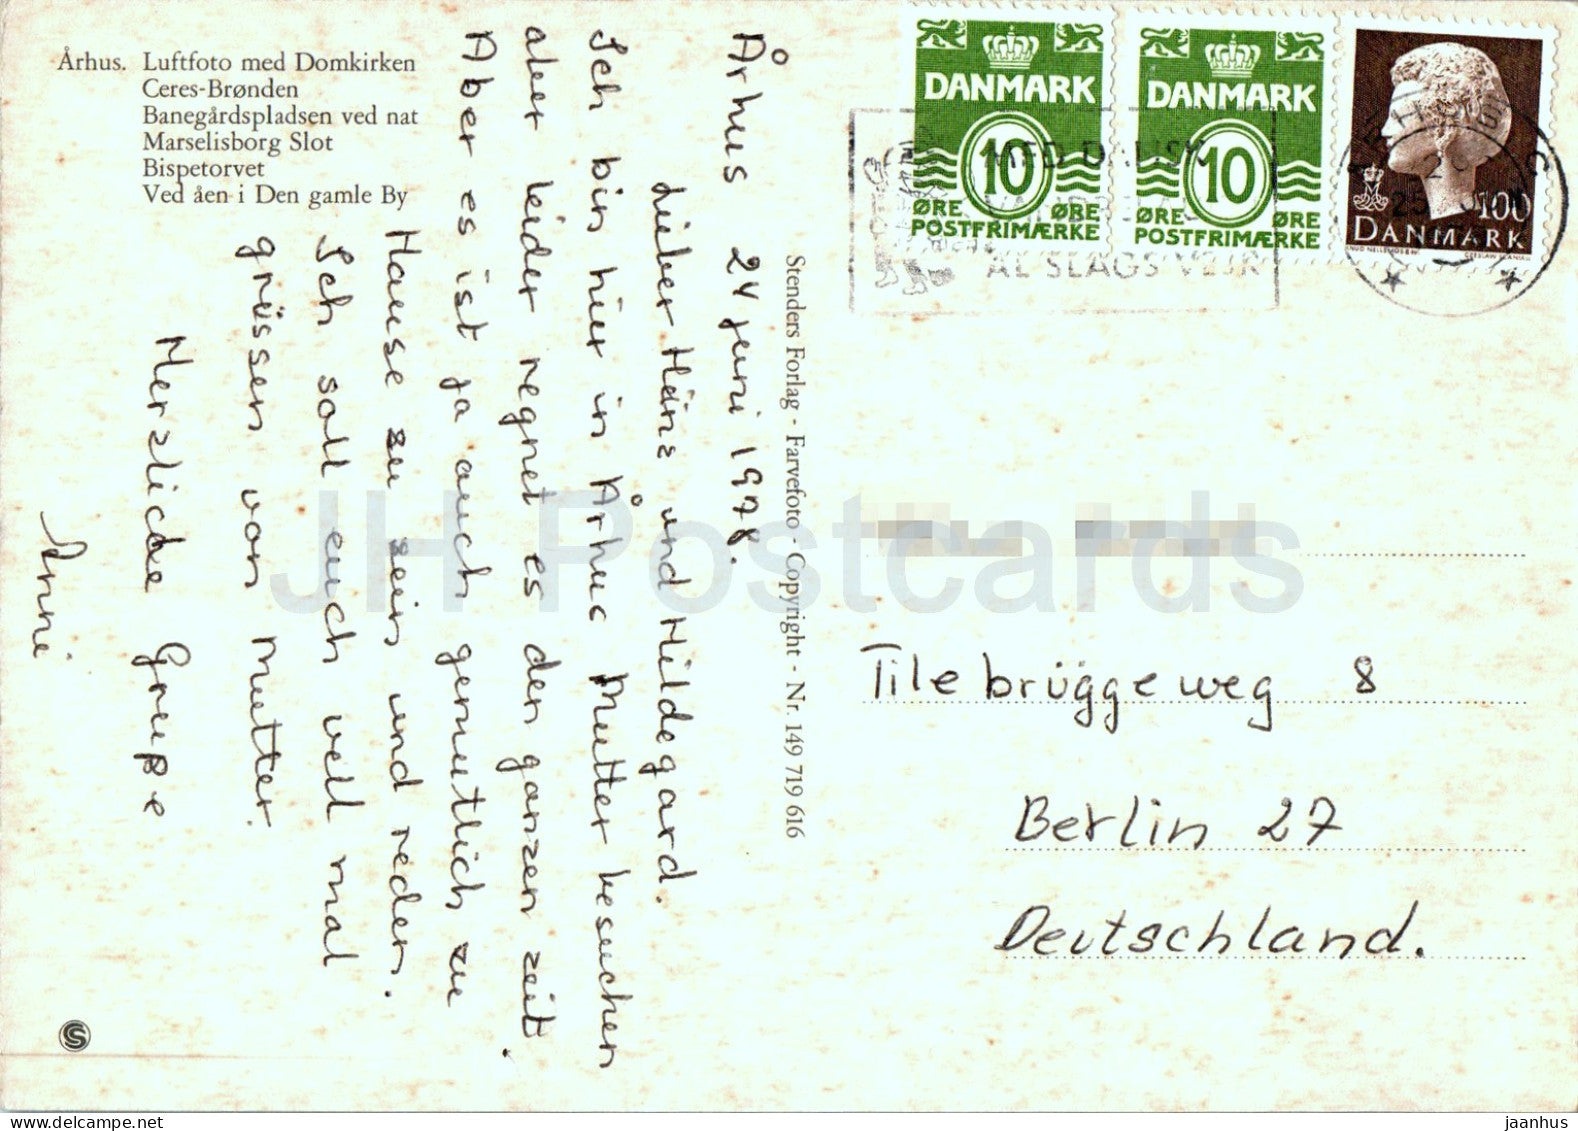 Århus. Luftfoto med Domkirken
Ceres-Brønden
Banegårdspladsen ved nat
Marselisborg Slot
Bispetorvet
Ved åen i Den gamle By
Århus 24 juni 1978.
Lieber Heinz und Hildegard.
Ich bin hier in Århus Mutter besuchen
aber leider regnet es den ganzen zeit.
Aber es ist ja auch gemutlich zu
Hause zu sein und reden.
Ich soll euch vell mal
grüssen von Mutter.
Herzliche Gruße
Anni
Stenders Forlag - Farvefoto - Copyright - Nr. 149 719 616
DANMARK
10
ØRE ØRE
POSTFRIMÆRKE
DANMARK
10
ØRE ØRE
POSTFRIMÆRKE
100
DANMARK
MED DANSK
AL SLAGS VEJR
Tilebrüggeweg 8
Berlin 27
Deutschland.
JH Postcards
S
www.delcampe.net
jaanhus